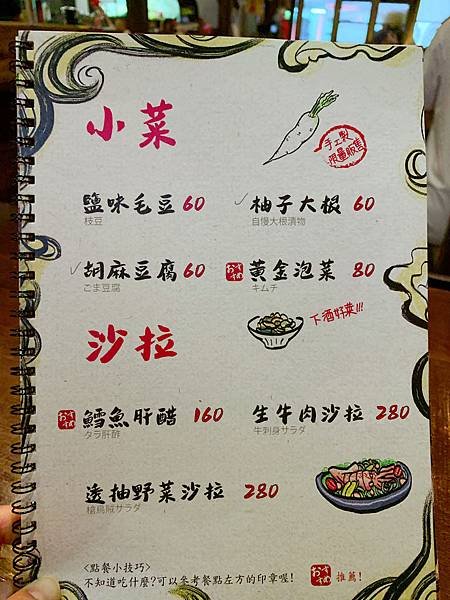 小菜
手工製
限量販售
鹽味毛豆 60
枝豆
柚子大根 60
自慢大根漬物
胡麻豆腐 60
ごま豆腐
おすすめ 黃金泡菜 80
キムチ
沙拉
下酒好菜!!!
おすすめ 鱈魚肝醋 160
タラ肝酢
生牛肉沙拉 280
牛刺身サラダ
透抽野菜沙拉 280
槍烏賊サラダ
<點餐小技巧>
不知道吃什麼?可以參考餐點左方的印章喔!
おすすめ 推薦!